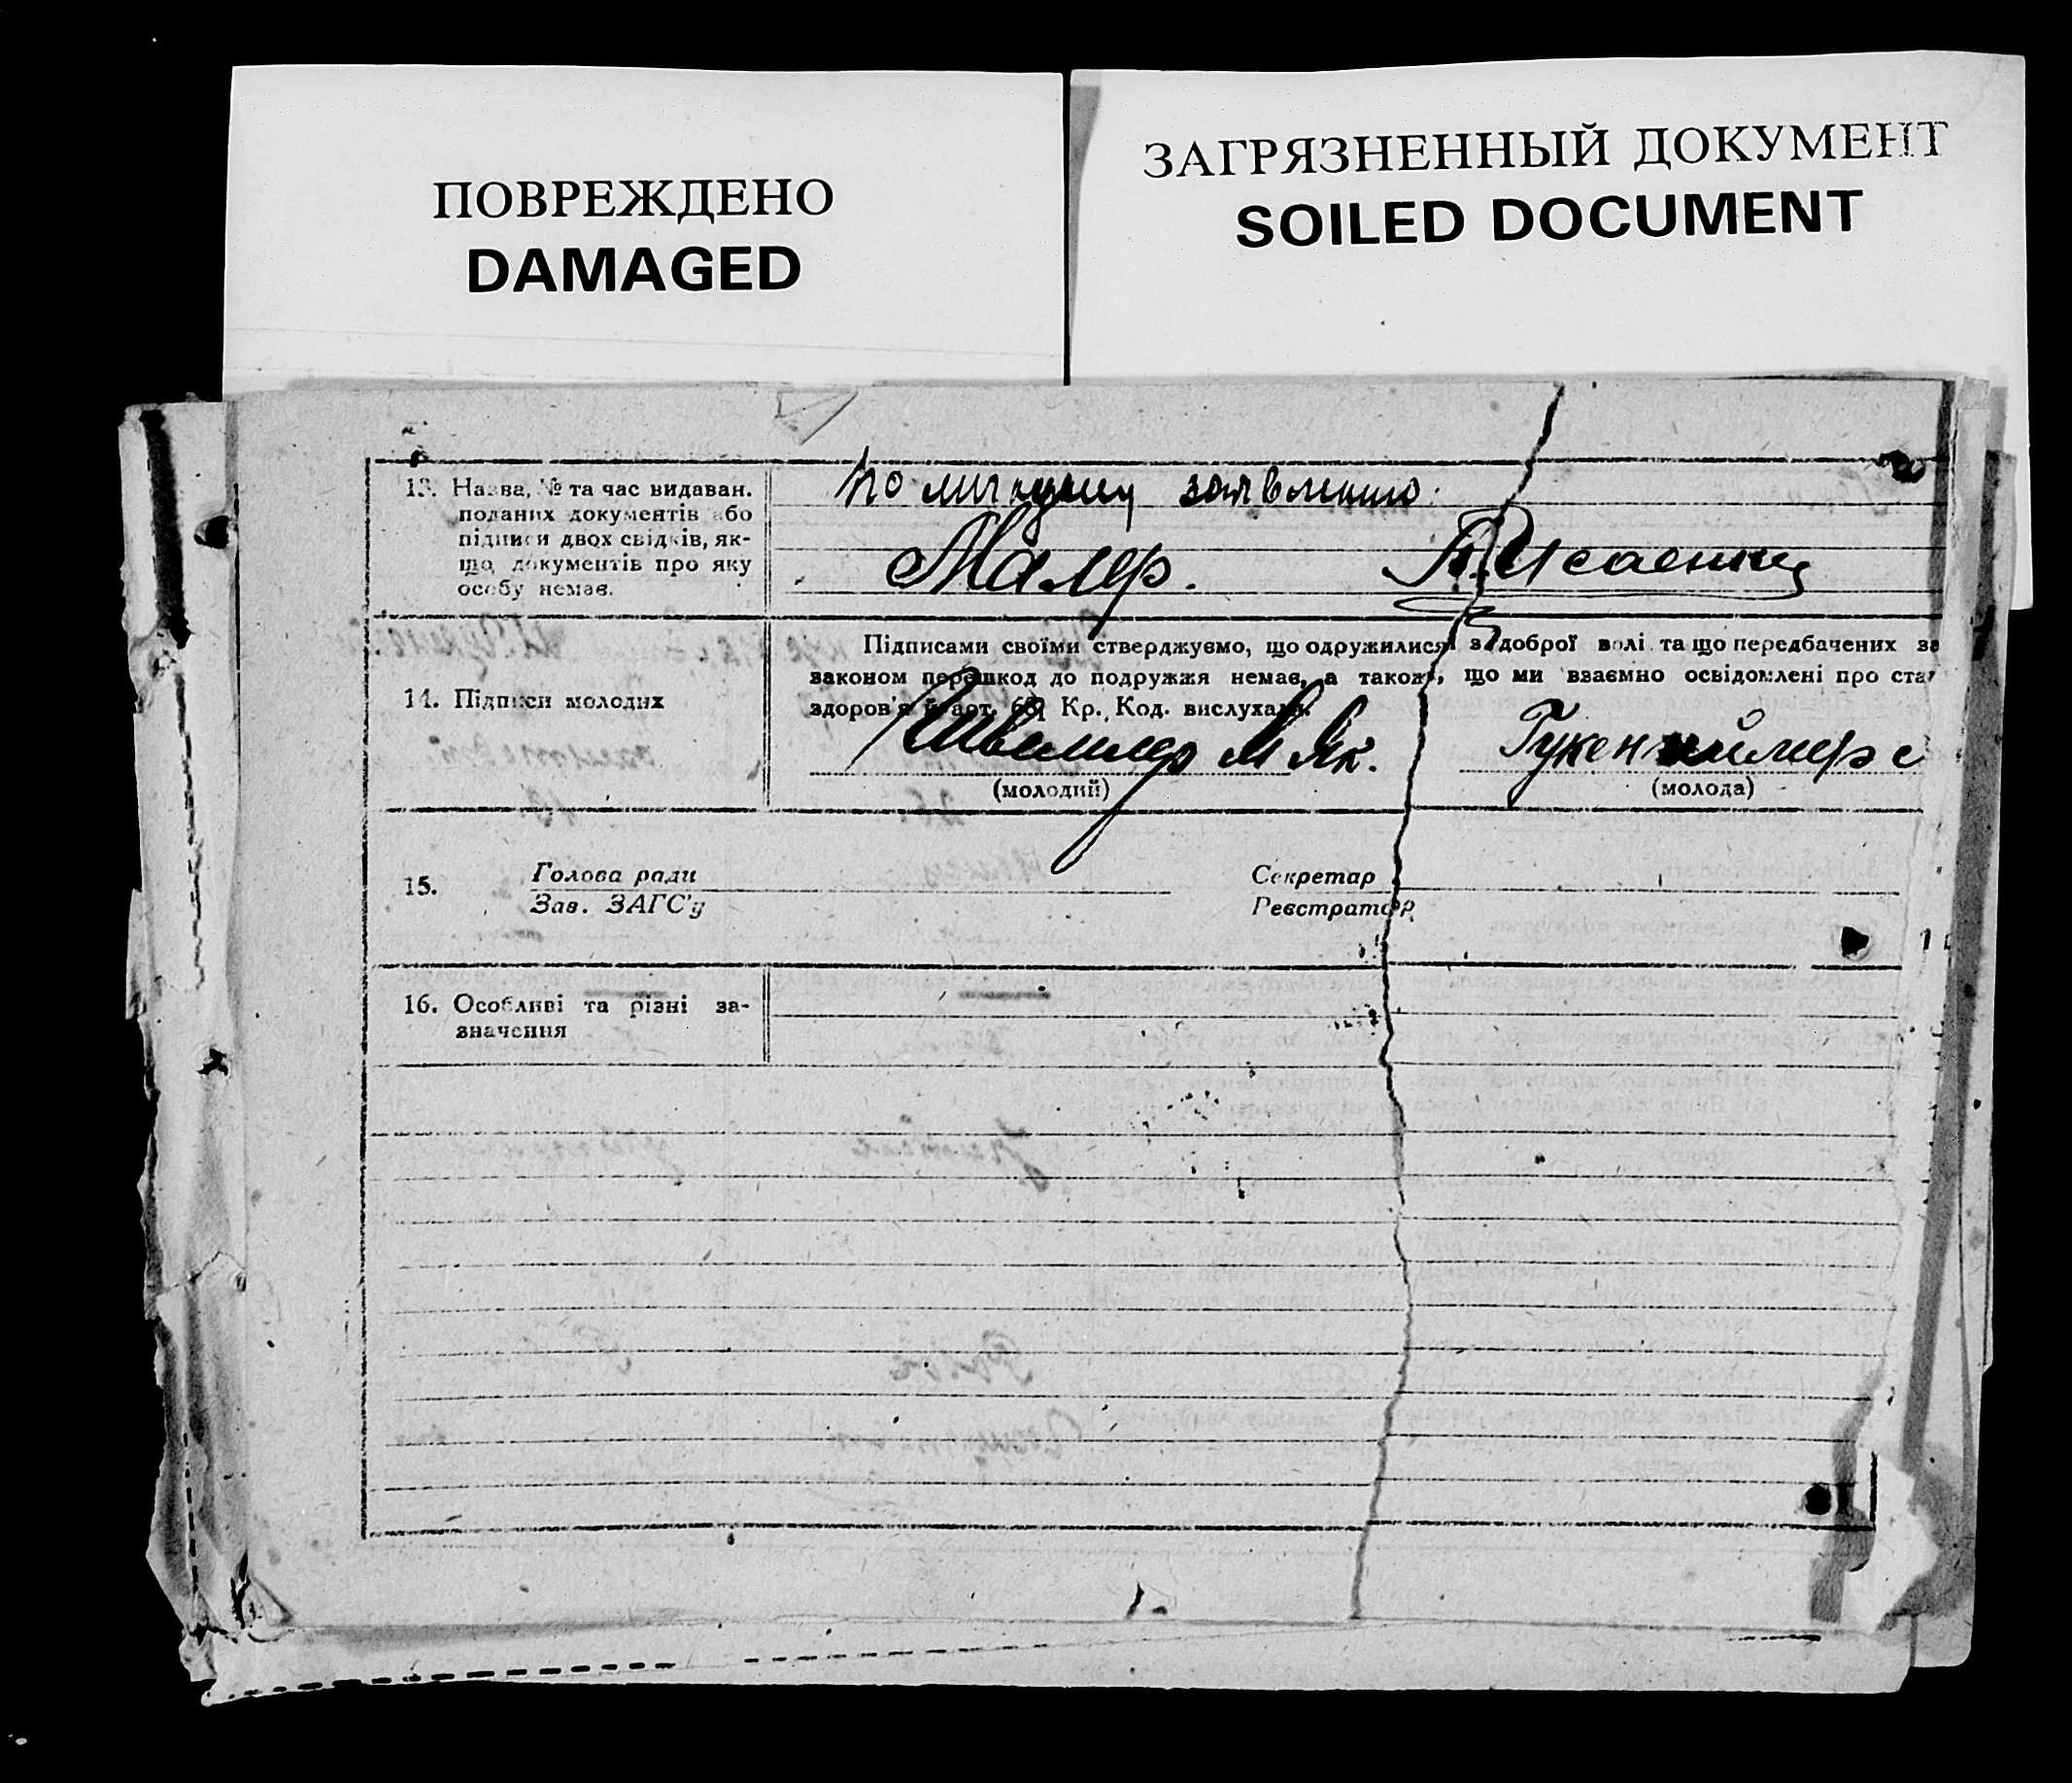 ПОВРЕЖДЕНО
DAMAGED
ЗАГРЯЗНЕННЫЙ ДОКУМЕНТ
SOILED DOCUMENT
13. Назва, № та час видаван.
поданих документів або
підписи двох свідків, як-
що документів про яку
особу немає.
По личному заявлению.
Малер. Исаенко
14. Підписи молодих
Підписами своїми стверджуємо, що одружилися з доброї волі та що передбачених за
законом перешкод до подружжя немає, а також, що ми взаємно освідомлені про ста
здоров'я й арт. Кр. Код. вислухали.
Швеммер М Як. Гукенгеймер с
(молодий) (молода)
15. Голова ради Секретар
Зав. ЗАГС'у Реєстратор
16. Особливі та різні за-
значення